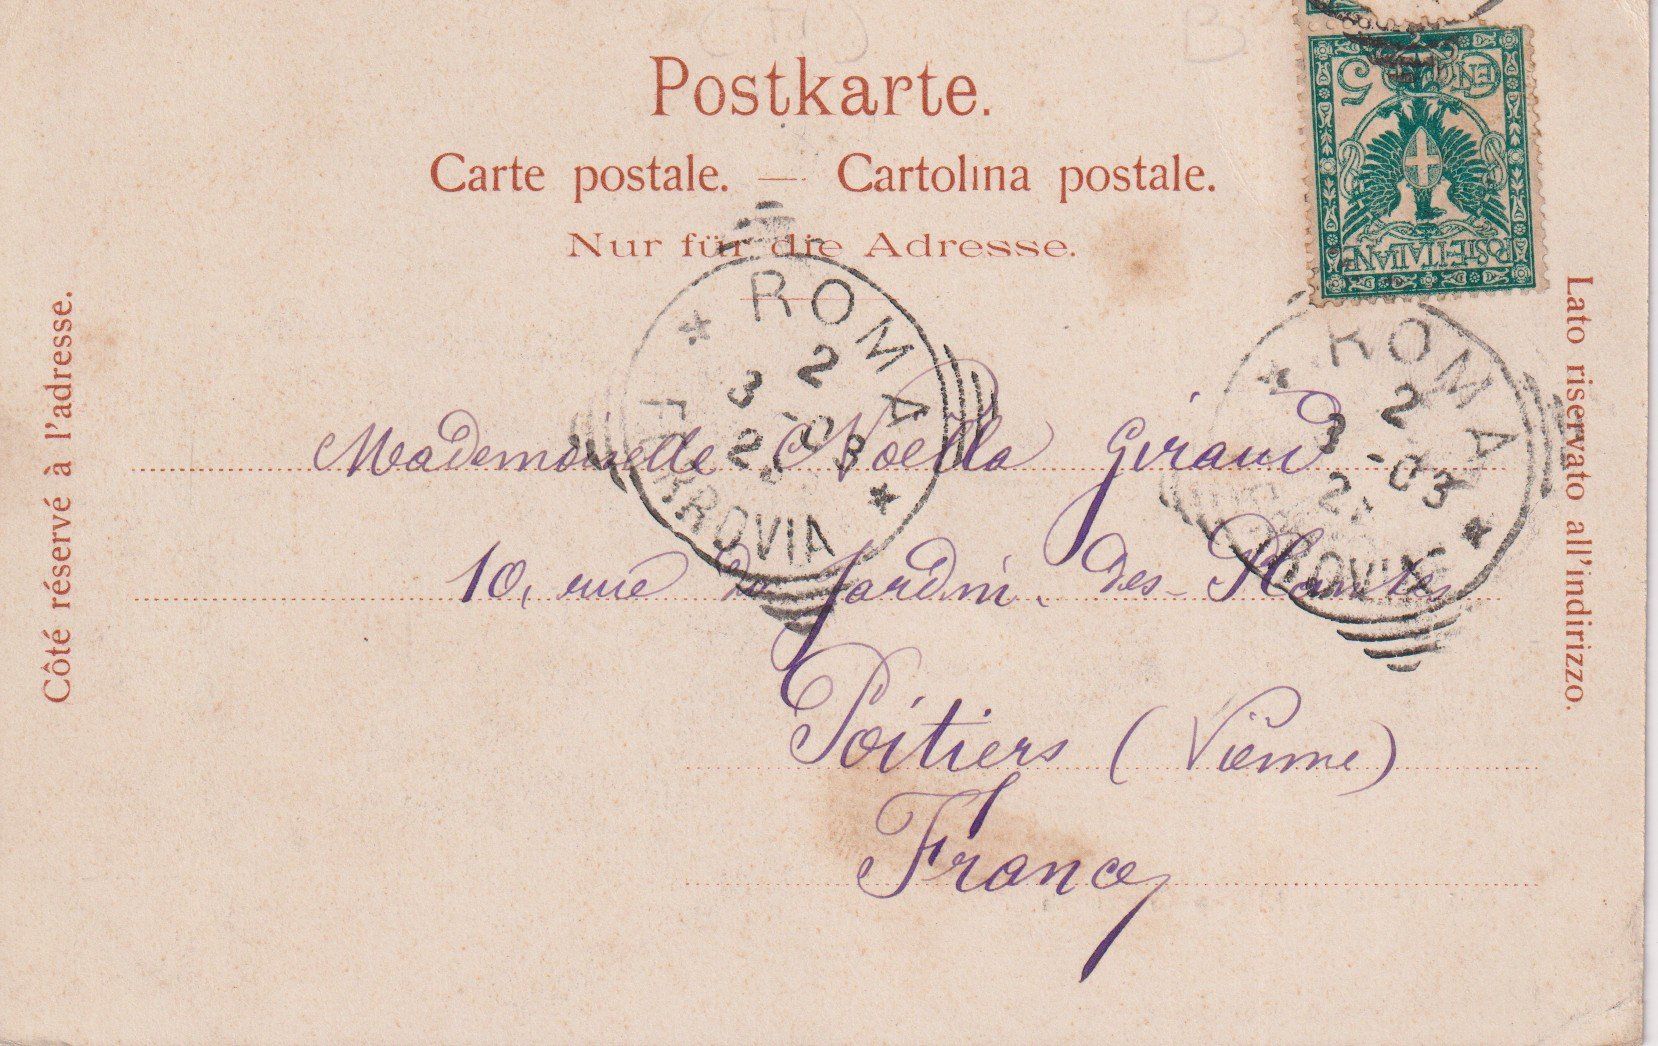 Postkarte.
Carte postale. — Cartolina postale.
Nur für die Adresse.
Côté réservé à l'adresse.
Lato riservato all'indirizzo.
CENT. 5
POSTE ITALIANE
ROMA
2
3 -03
FERROVIA
ROMA
2
3 -03
Mademoiselle Noëlla Giraud
10, rue du Jardin-des-Plantes
Poitiers (Vienne)
France